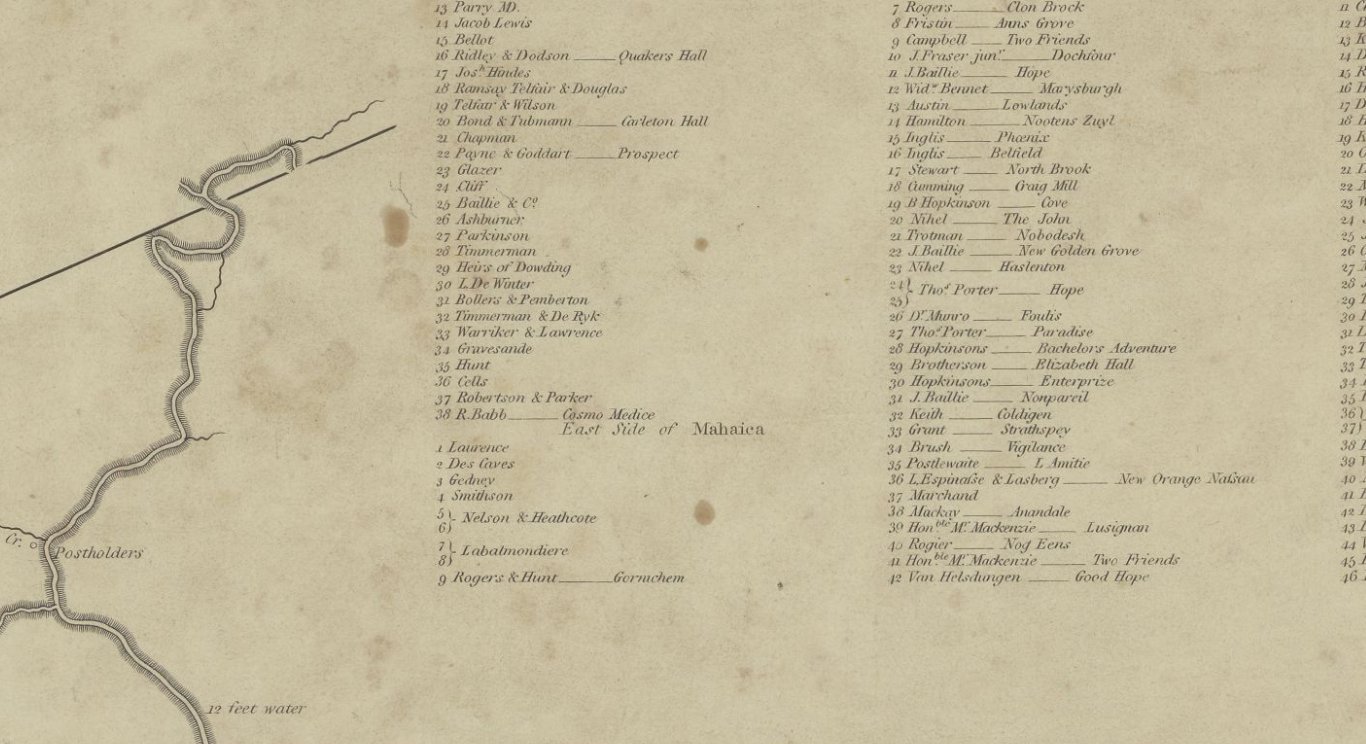 13 Parry MD.
14 Jacob Lewis
15 Bellot
16 Ridley & Dodson —— Quakers Hall
17 Josh Hindes
18 Ramsay Telfair & Douglas
19 Telfair & Wilson
20 Bond & Tubmann —— Carleton Hall
21 Chapman
22 Payne & Goddart —— Prospect
23 Glazer
24 Cliff
25 Baillie & Co.
26 Ashburner
27 Parkinson
28 Timmerman
29 Heirs of Dowding
30 L. De Winter
31 Bollers & Pemberton
32 Timmerman & De Ryk
33 Warriker & Lawrence
34 Gravesande
35 Hunt
36 Cells
37 Robertson & Parker
38 R. Babb —— Cosmo Medice
East Side of Mahaica
1 Laurence
2 Des Caves
3 Gedney
4 Smithson
5} 6} Nelson & Heathcote
7} 8} Labalmondiere
9 Rogers & Hunt —— Gornichem
7 Rogers —— Clon Brock
8 Fristin —— Anns Grove
9 Campbell —— Two Friends
10 J. Fraser junr. —— Dochfour
11 J. Baillie —— Hope
12 Widw. Bennet —— Marysburgh
13 Austin —— Lowlands
14 Hamilton —— Nootens Zuyl
15 Inglis —— Phœnix
16 Inglis —— Belfield
17 Stewart —— North Brook
18 Cumming —— Craig Mill
19 B Hopkinson —— Cove
20 Nihel —— The John
21 Trotman —— Nobodesh
22 J. Baillie —— New Golden Grove
23 Nihel —— Haslenton
24} 25} Thos. Porter —— Hope
26 Dr. Munro —— Foulis
27 Thos. Porter —— Paradise
28 Hopkinsons —— Bachelors Adventure
29 Brotherson —— Elizabeth Hall
30 Hopkinsons —— Enterprize
31 J. Baillie —— Nonpareil
32 Keith —— Coldigen
33 Grant —— Strathspey
34 Brush —— Vigilance
35 Postlewaite —— L Amitie
36 L,Espinasse & Lasberg —— New Orange Nassau
37 Marchand
38 Mackay —— Anandale
39 Honble. Mr. Mackenzie —— Lusignan
40 Rogier —— Nog Eens
41 Honble. Mr. Mackenzie —— Two Friends
42 Van Helsdungen —— Good Hope
Cr.
Postholders
12 feet water